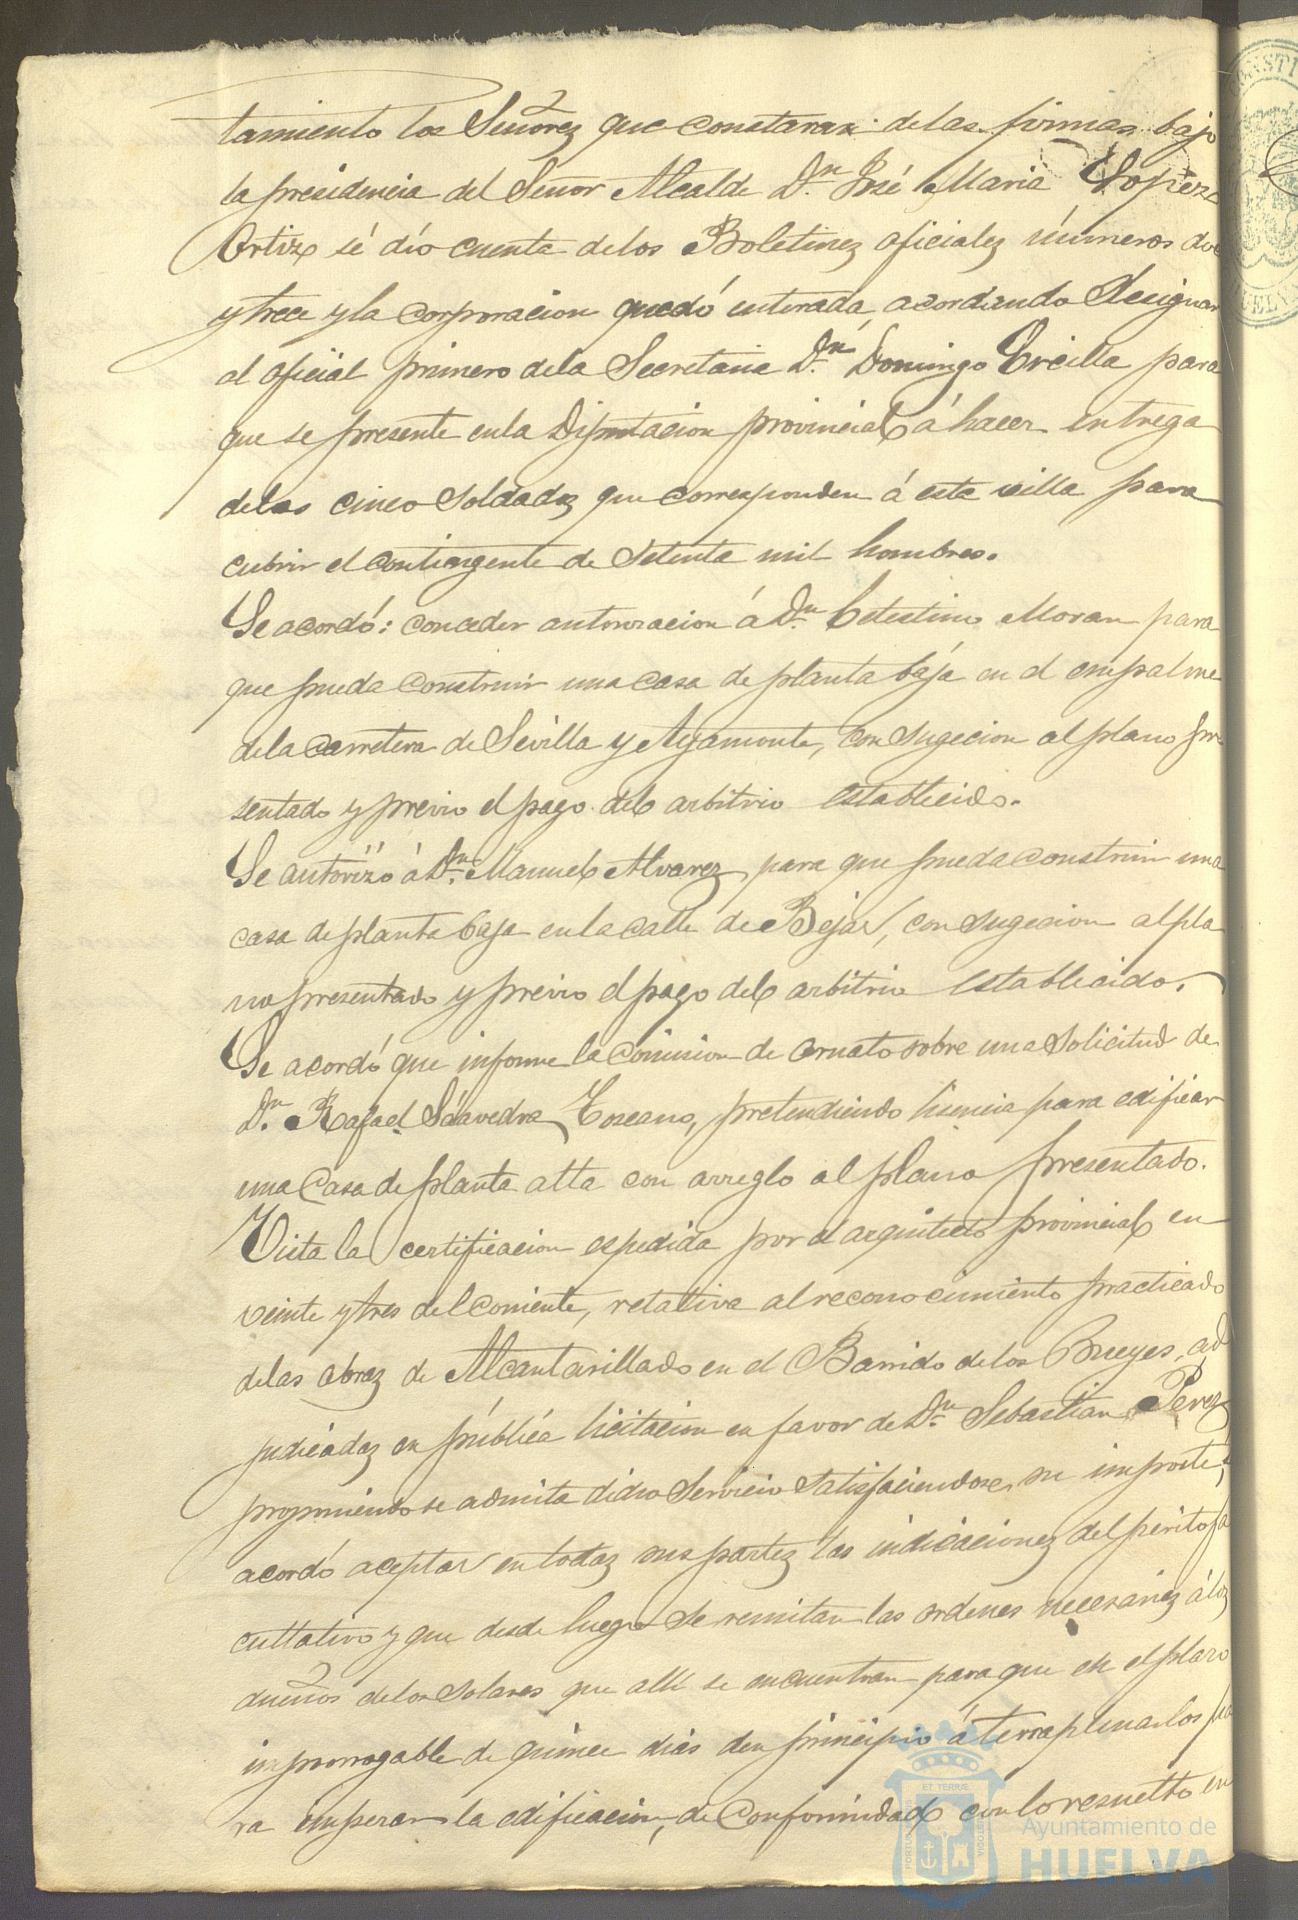 tamiento los Señores que constaran de las firmas bajo
la presidencia del Señor Alcalde Dn José Maria Lopez
Ortiz sé dió cuenta de los Boletines oficiales números doce
y trece y la corporacion quedó enterada, acordando designar
al oficial primero de la Secretaria Dn Domingo Ercilla para
que se presente en la Diputacion provincial á hacer entrega
de los cinco soldados que corresponden á esta villa para
cubrir el contingente de setenta mil hombres.
Se acordó: conceder autorizacion á Dn Celestino Moran para
que pueda construir una casa de planta baja en el empalme
de la carretera de Sevilla y Ayamonte, con sugecion al plano pre
sentado y previo el pago del arbitrio establecido.
Se autorizó á Dn Manuel Alvarez para que pueda construir una
casa de planta baja en la calle de Bejar, con sugecion al pla
no presentado y previo el pago del arbitrio establecido.
Se acordó que informe la comision de ornato sobre una solicitud de
Dn Rafael Saavedra Toscano, pretendiendo licencia para edificar
una casa de planta alta con arreglo al plano presentado.
Vista la certificacion espedida por el arquitecto provincial en
veinte y tres del corriente, relativa al reconocimiento practicado
de las obras de Alcantarillado en el Barrido de los Bueyes, ad
judicadas en pública licitacion en favor de Dn Sebastian Perez
proponiendo se admita dicho servicio satisfaciendose su importe,
acordó aceptar en todas sus partes las indicaciones del perito fa
cultativo y que desde luego se remitan las ordenes necesarias á los
dueños de los solares que alli se encuentran para que en el plazo
improrrogable de quince dias den principio á terraplenarlos pa
ra empezar la edificacion, de conformidad con lo resuelto en
ET TERRÆ
Ayuntamiento de
HUELVA